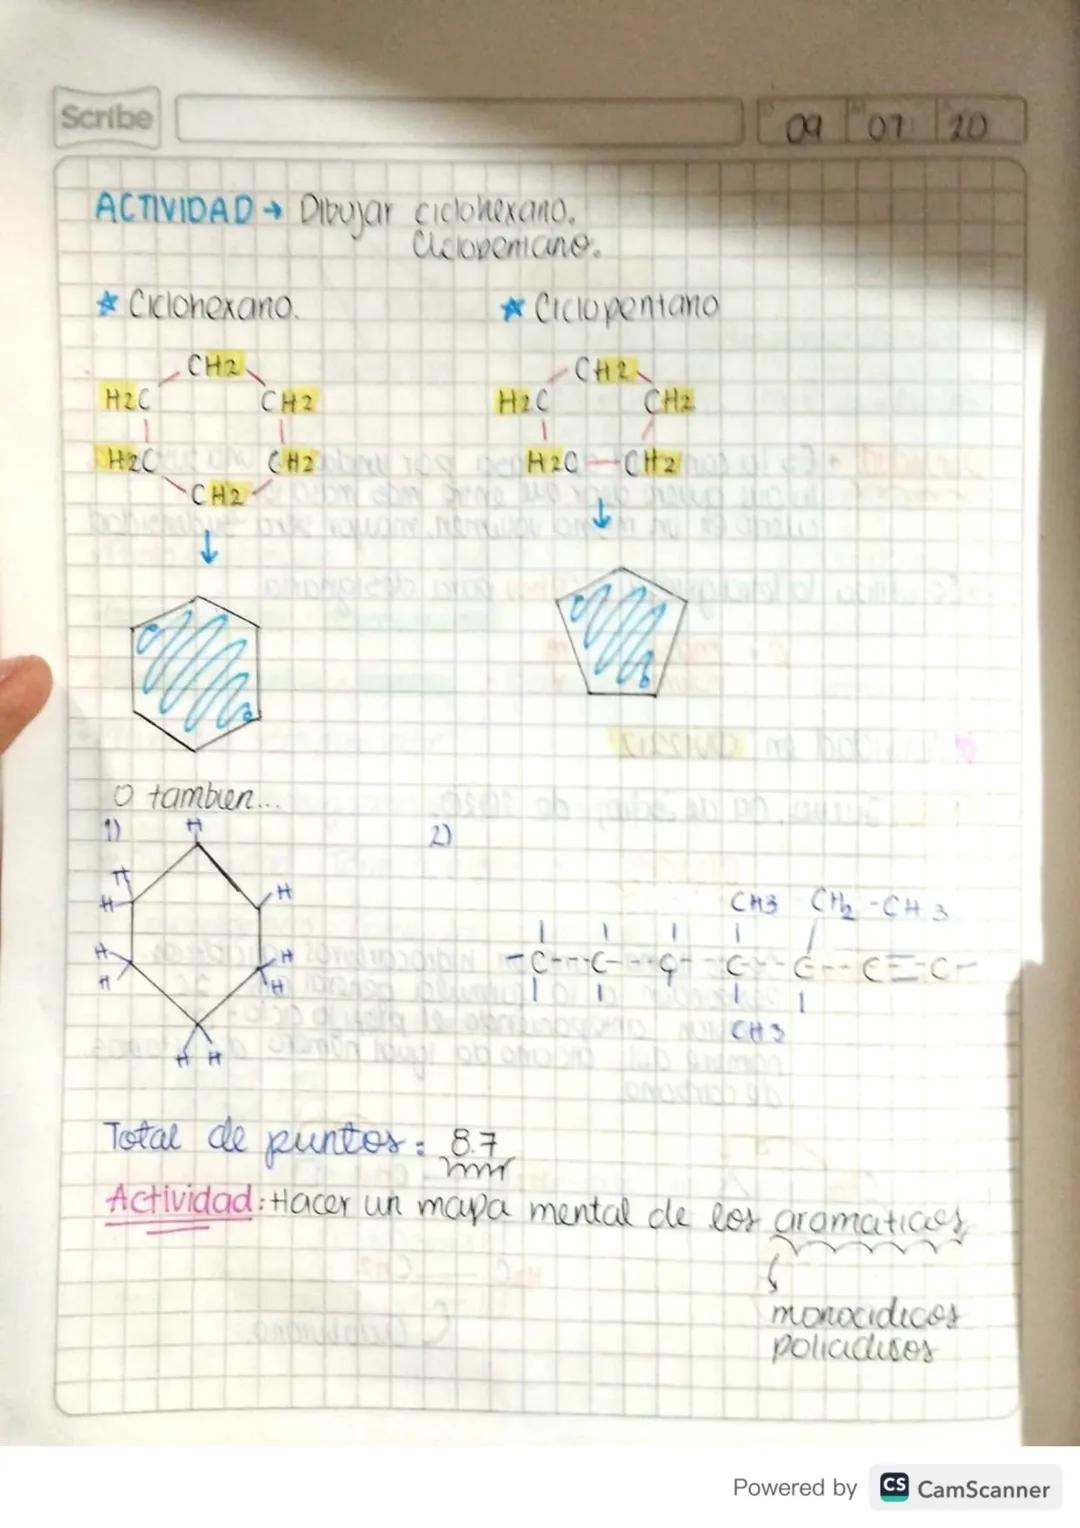 Scribe
09 07 20
ACTIVIDAD → Dibujar ciclohexano.
Ciclopentano.
* Ciclohexano.
* Ciclopentano
CH2
H2C CH2
H2C CH2
CH2
CH2
H2C CH2
H2C — CH2
O tambien...
1)
2)
H
H
H
H
H
H
H
H
H
H H
CH3 CH2 - CH3
- C --- C --- C --- C --- C -- C ≡ C -
CH3
Total de puntos: 8.7
Actividad: Hacer un mapa mental de los aromaticos
monociclicos
policiclicos
Powered by CS CamScanner